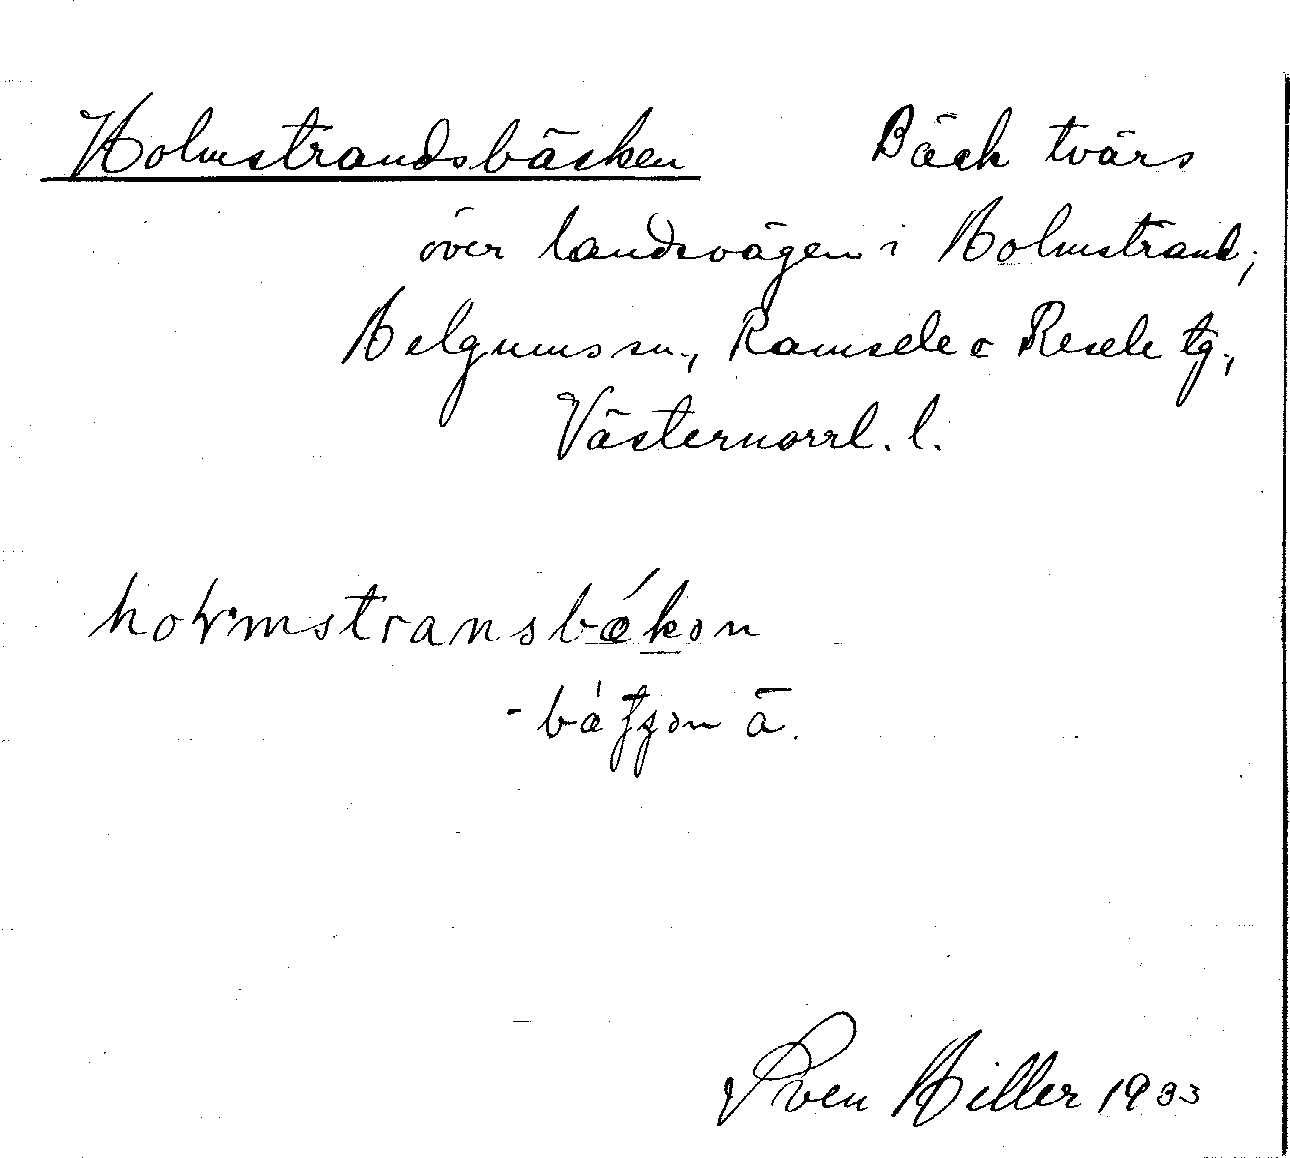 Holmstrandsbäcken Bäck tvärs
över landsvägen i Holmstrand,
Helgums sn., Ramsele o Resele tg.,
Västernorrl. l.
-
Sven Hiller 1933